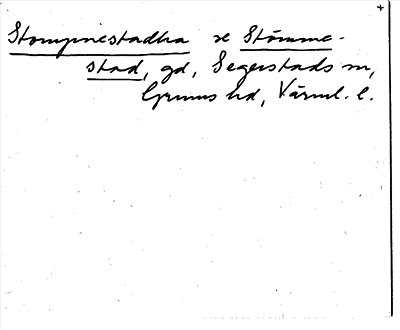 Stompnestadha se Stömme-
stad, gd, Segerstads sn,
Grums hd, Värml. l.